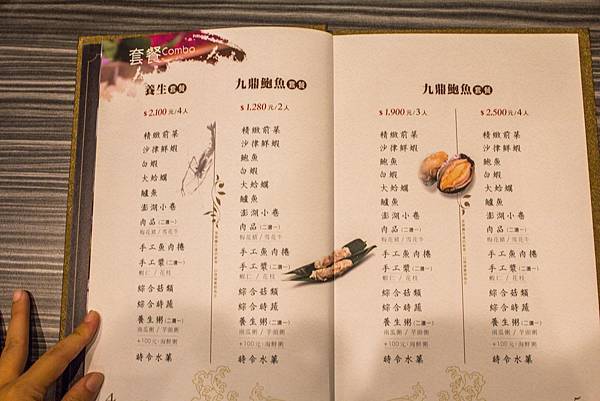 套餐Combo
養生套餐
$ 2,100元/4人
精緻前菜
沙律鮮蝦
白蝦
大蛤蠣
鱸魚
澎湖小卷
肉品(二選一)
梅花豬/雪花牛
手工魚肉捲
手工漿(二選一)
蝦仁 / 花枝
綜合菇類
綜合時蔬
養生粥(二選一)
南瓜粥 / 芋頭粥
+100元/海鮮粥
時令水菓
4
九鼎鮑魚套餐
$ 1,280元/2人
精緻前菜
沙律鮮蝦
鮑魚
白蝦
大蛤蠣
鱸魚
澎湖小卷
肉品(二選一)
梅花豬/雪花牛
手工魚肉捲
手工漿(二選一)
蝦仁 / 花枝
綜合菇類
綜合時蔬
養生粥(二選一)
南瓜粥 / 芋頭粥
+100元/海鮮粥
時令水菓
九鼎鮑魚套餐
$ 1,900元/3人
精緻前菜
沙律鮮蝦
鮑魚
白蝦
大蛤蠣
鱸魚
澎湖小卷
肉品(二選一)
梅花豬/雪花牛
手工魚肉捲
手工漿(二選一)
蝦仁 / 花枝
綜合菇類
綜合時蔬
養生粥(二選一)
南瓜粥 / 芋頭粥
+100元/海鮮粥
時令水菓
$ 2,500元/4人
精緻前菜
沙律鮮蝦
鮑魚
白蝦
大蛤蠣
鱸魚
澎湖小卷
肉品(二選一)
梅花豬/雪花牛
手工魚肉捲
手工漿(二選一)
蝦仁 / 花枝
綜合菇類
綜合時蔬
養生粥(二選一)
南瓜粥 / 芋頭粥
+100元/海鮮粥
時令水菓
5